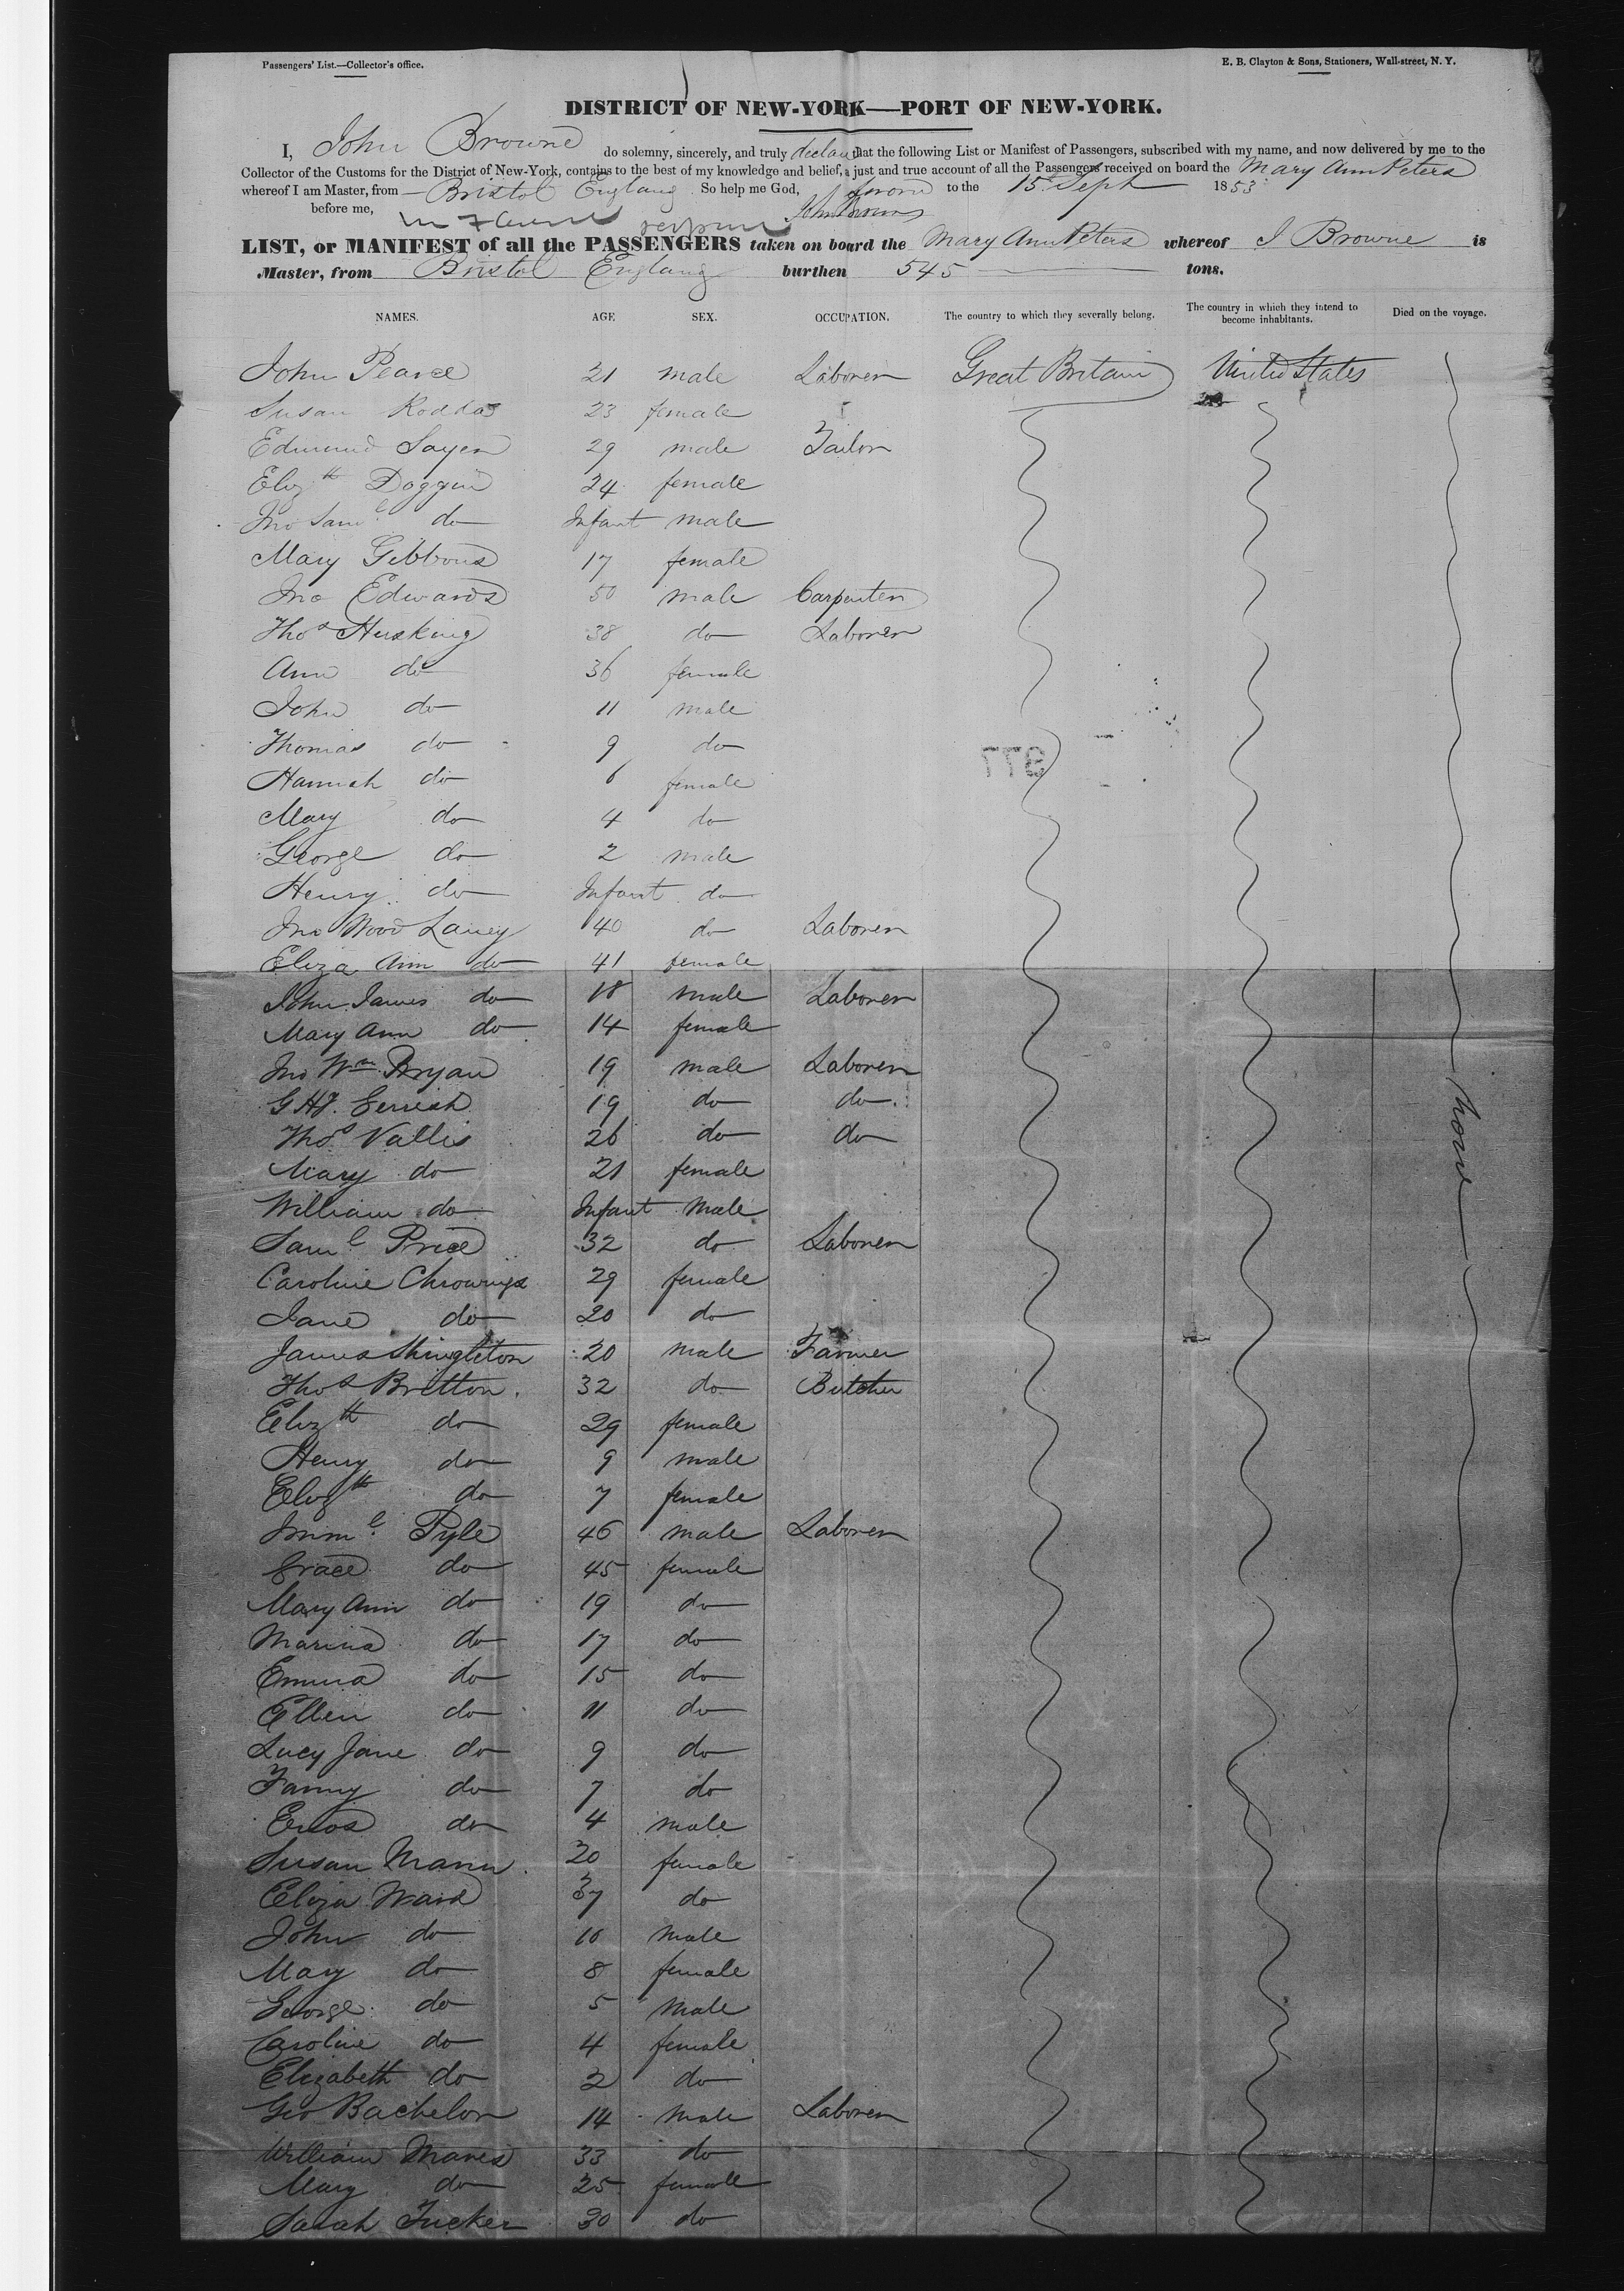 Passengers' List.—Collector's office.
E. B. Clayton & Sons, Stationers, Wall-street, N. Y.
DISTRICT OF NEW-YORK—PORT OF NEW-YORK.
I, John Browne do solemny, sincerely, and truly declare that the following List or Manifest of Passengers, subscribed with my name, and now delivered by me to the
Collector of the Customs for the District of New-York, contains to the best of my knowledge and belief, a just and true account of all the Passengers received on board the Mary Ann Peters
whereof I am Master, from Bristol England So help me God, Sworn to the 15 Sept 1853
before me, John Browne
LIST, or MANIFEST of all the PASSENGERS taken on board the Mary Ann Peters whereof J Browne is
Master, from Bristol England burthen 545 tons.
NAMES. AGE SEX. OCCUPATION. The country to which they severally belong. The country in which they intend to become inhabitants. Died on the voyage.
John Pearce 21 male Laborer Great Britain United States
Susan Rodda 23 female
Edmund Sayer 29 male Tailor
Elizth Doggin 24 female
Jno Saml do Infant male
Mary Gibbons 17 female
Jno Edwards 50 male Carpenter
Thos Husking 38 do Laborer
Ann do 36 female
John do 11 male
Thomas do 9 do
977
Hannah do 6 female
Mary do 4 do
George do 2 male
Henry do Infant do
Jno Wood Laney 40 do Laborer
Eliza Ann do 41 female
John James do 18 male Laborer
Mary Ann do 14 female
Jno Wm Bryan 19 male Laborer
G H J. Gerrish 19 do do
none
Thos Vallis 26 do do
Mary do 21 female
William do Infant Male
Saml Price 32 do Laborer
Caroline Chrowings 29 female
Jane do 20 do
James Shingleton 20 male Farmer
Thos Britton 32 do Butcher
Elizth do 29 female
Henry do 9 male
Elizth do 7 female
Imml Pyle 46 male Laborer
Grace do 45 female
Mary Ann do 19 do
Marina do 17 do
Emma do 15 do
Ellen do 11 do
Lucy Jane do 9 do
Fanny do 7 do
Enos do 4 male
Susan Mann 20 female
Eliza Ward 37 do
John do 10 male
Mary do 8 female
George do 5 male
Caroline do 4 female
Elizabeth do 2 do
Geo Bachelor 14 male Laborer
William Maves 33 do
Mary do 25 female
Sarah Tucker 30 do